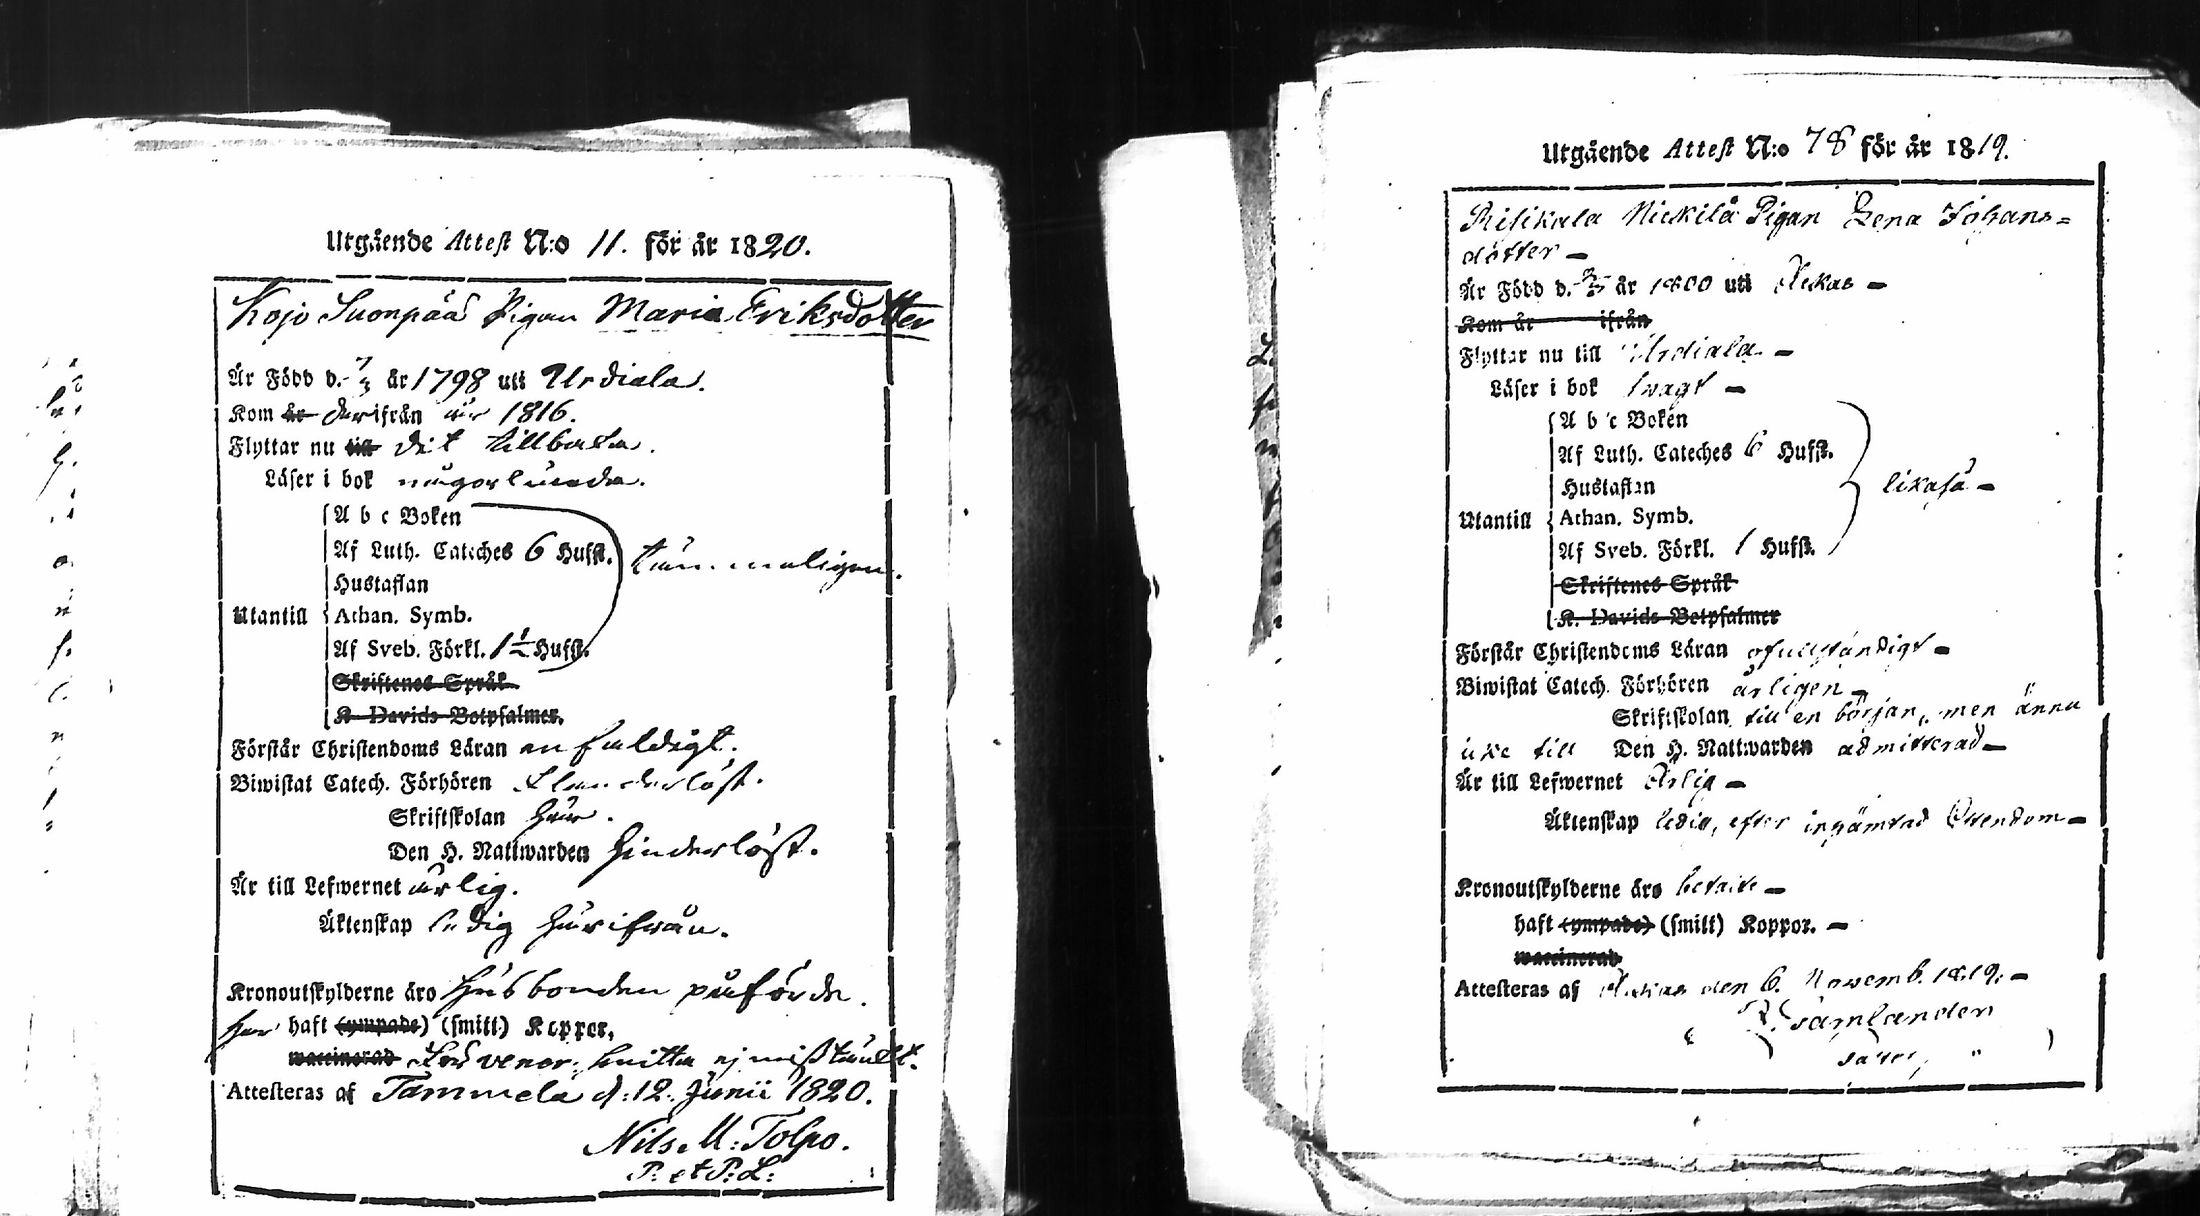 Utgående Attest N:o 11. för år 1820.
Kojo Suonpää Pigan Maria Eriksdotter
Är Född d. 7/3 år 1798 uti Urdiala.
Kom år derifrån år 1816.
Flyttar nu till dit tillbaka.
Läser i bok någorlunda.
A b c Boken
Af Luth. Cateches 6 Hufst. tämmeligen.
Hustaflan
Utantill Athan. Symb.
Af Sveb. Förkl. 1 1/2 Hufst.
Skriftenes Språk
K. Davids Botpsalmer.
Förstår Christendoms Läran enfaldigt.
Biwistat Catech. Förhören klanderlöst.
Skriftskolan här.
Den H. Nattwarden hinderlöst.
Är till Lefwernet ärlig.
Äktenskap ledig härifrån.
Kronoutskylderne äro Husbonden påförde.
har haft (ympade) (smitt) Koppor,
waccinerad För vener. smitta ej misstänkt.
Attesteras af Tammela d. 12. Junii 1820.
Nils M: Tolpo.
P. et P. L.
Utgående Attest N:o 78 för år 1819.
Risikala Nickilä Pigan Lena Johans=
dotter –
Är Född d. år 1800 uti Akkas –
Kom år ifrån
Flyttar nu till Urdiala –
Läser i bok swagt –
A b c Boken
Af Luth. Cateches 6 Hufst.
Hustaflan likaså –
Utantill Athan. Symb.
Af Sveb. Förkl. 1 Hufst.
Skriftenes Språk
K. Davids Botpsalmer
Förstår Christendoms Läran ofullständigt –
Biwistat Catech. Förhören årligen –
Skriftskolan till en början, men ännu
icke till Den H. Nattwarden admitterad –
Är till Lefwernet Ärlig –
Äktenskap ledig, efter inhämtad –
Kronoutskylderne äro betalte –
haft (ympade) (smitt) Koppor. –
waccinerad
Attesteras af Akkas den 6. Novemb. 1819. –